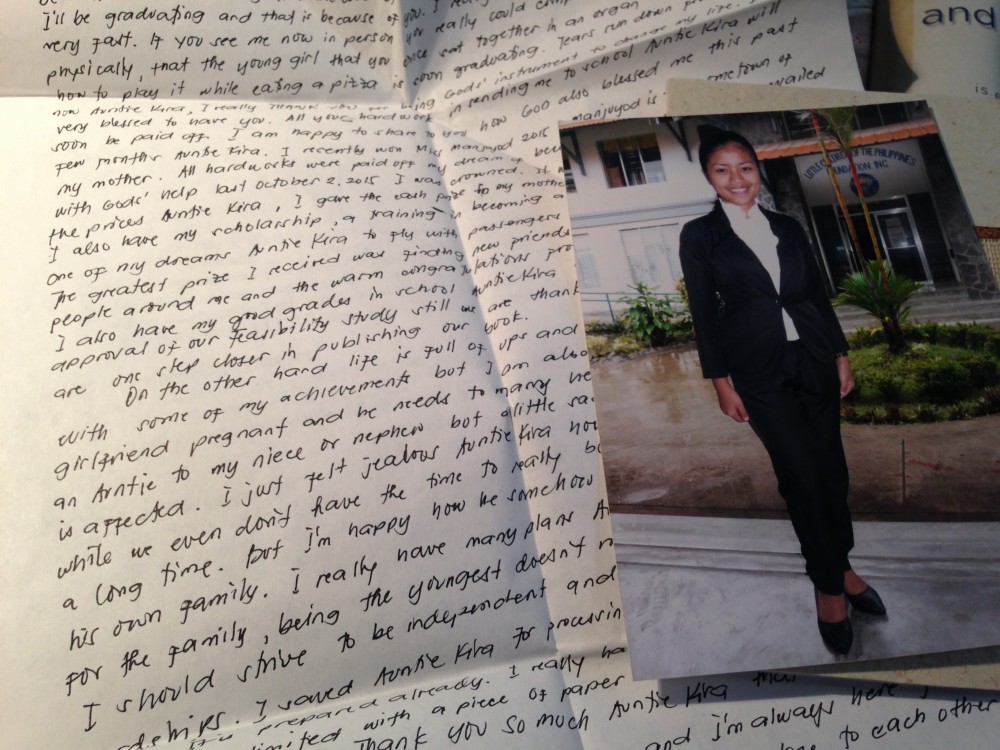 I'll be graduating and that is because of you. I
very fast. If you see me now in person you really could
physically, that the young girl that you once sat together in an organ
how to play it while eating a pizza is soon graduating. Tears run down
now Auntie Kira, I really Thank you for being Gods' instrument to change my life.
very blessed to have you. All your hardwork in sending me to school Auntie Kira will
soon be paid off. I am happy to share to you how God also blessed me this past
few months Auntie Kira. I recently won Miss Manjuyod 2015 manjuyod is hometown of
my mother. All hardworks were paid off my dream
with Gods' help last October 2, 2015 I was crowned. It
the prices Auntie Kira, I gave the cash prize to my mother
I also have my scholarship, a training in becoming a
one of my dreams Auntie Kira to fly with passengers
The greatest prize I received was finding new friends
people around me and the warm congratulations
I also have my good grades in school Auntie Kira
approval of our feasibility study still we are thank
are one step closer in publishing our book.
On the other hand life is full of ups and
with some of my achievements but I am also
girlfriend pregnant and he needs to marry he
an Auntie to my niece or nephew but a little sa
is affected. I just felt jealous Auntie Kira how
while we even don't have the time to really b
a long time. But I'm happy how he somehow
his own family. I really have many plans A
for the family, being the youngest doesn't m
I should strive to be independent and
rdships. I saved Auntie Kira for processin
prepared already. I really ha
limited with a piece of paper
Thank you so much Auntie Kira that
and I'm always here
to each other
and
is
wailed
LITTLE CHILDREN OF THE PHILIPPINES
FOUNDATION, INC.